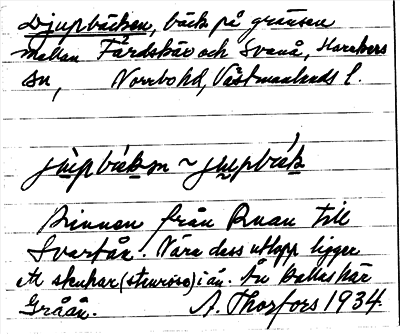 Djupbäcken, bäck på gränsen
mellan Färdskär och Svanå, Harakers
sn, Norrbo hd, Västmanlands l.
jùpbäkən ~ jupbäk
Rinner från Ruan till
Svartån. Nära dess utlopp ligger
ett skuhar (stenröse) i ån. Ån kallas här
Gråån. A. Thorfors 1934